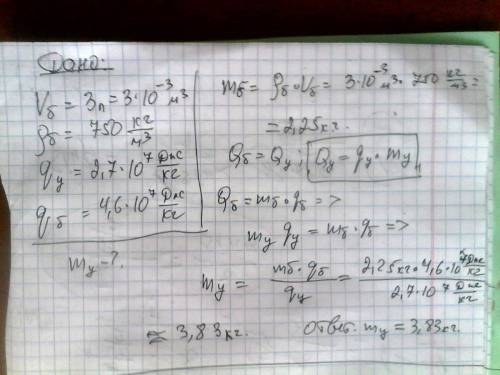 Дано:
Vб = 3л = 3·10⁻³ м³
ρб = 750 кг/м³
qу = 2,7·10⁷ Дж/кг
qб = 4,6·10⁷ Дж/кг
mу - ?
mб = ρб·Vб = 3·10⁻³ м³ · 750 кг/м³ =
= 2,25 кг.
Qб = Qу ; Qу = qу·mу
Qб = mб·qб =>
mу qу = mб·qб =>
mу = mб·qб / qу = 2,25кг·4,6·10⁷ Дж/кг / 2,7·10⁷ Дж/кг
≈ 3,83кг.
Ответ: mу = 3,83кг.